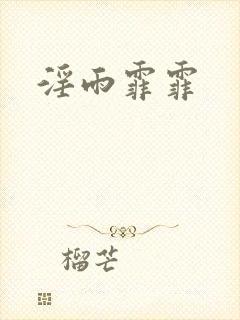 淫雨霏霏
榴芒